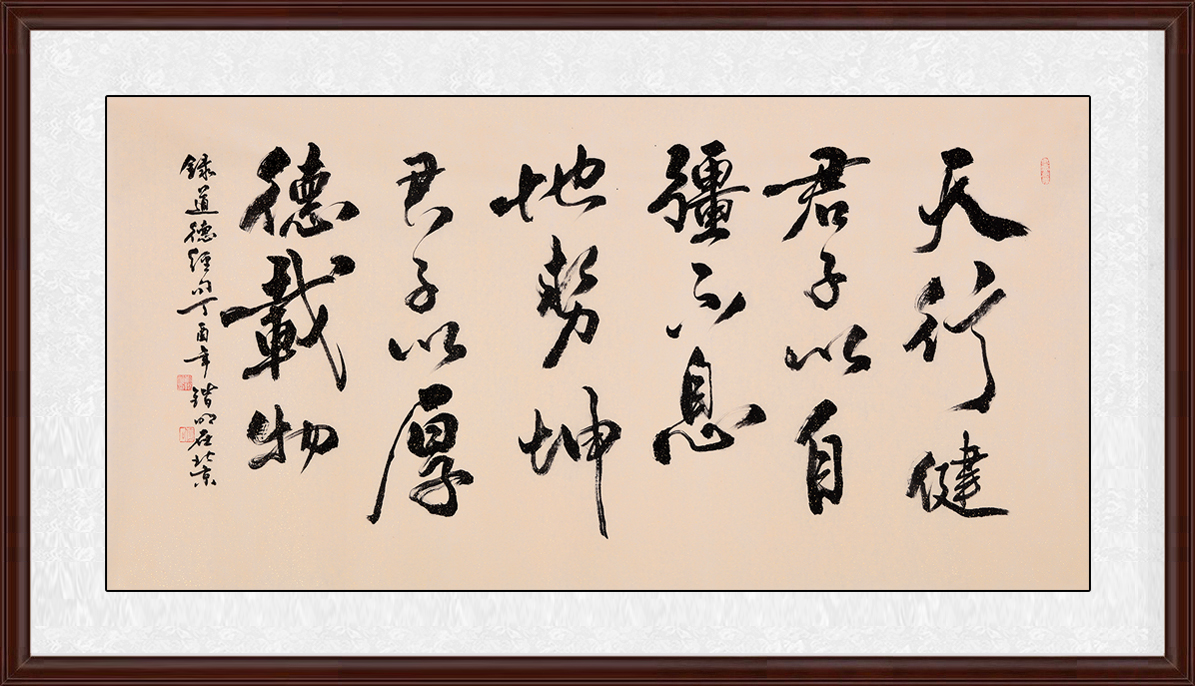 天行健
君子以自
彊不息
地势坤
君子以厚
德載物
録道德經句丁酉年
在北京